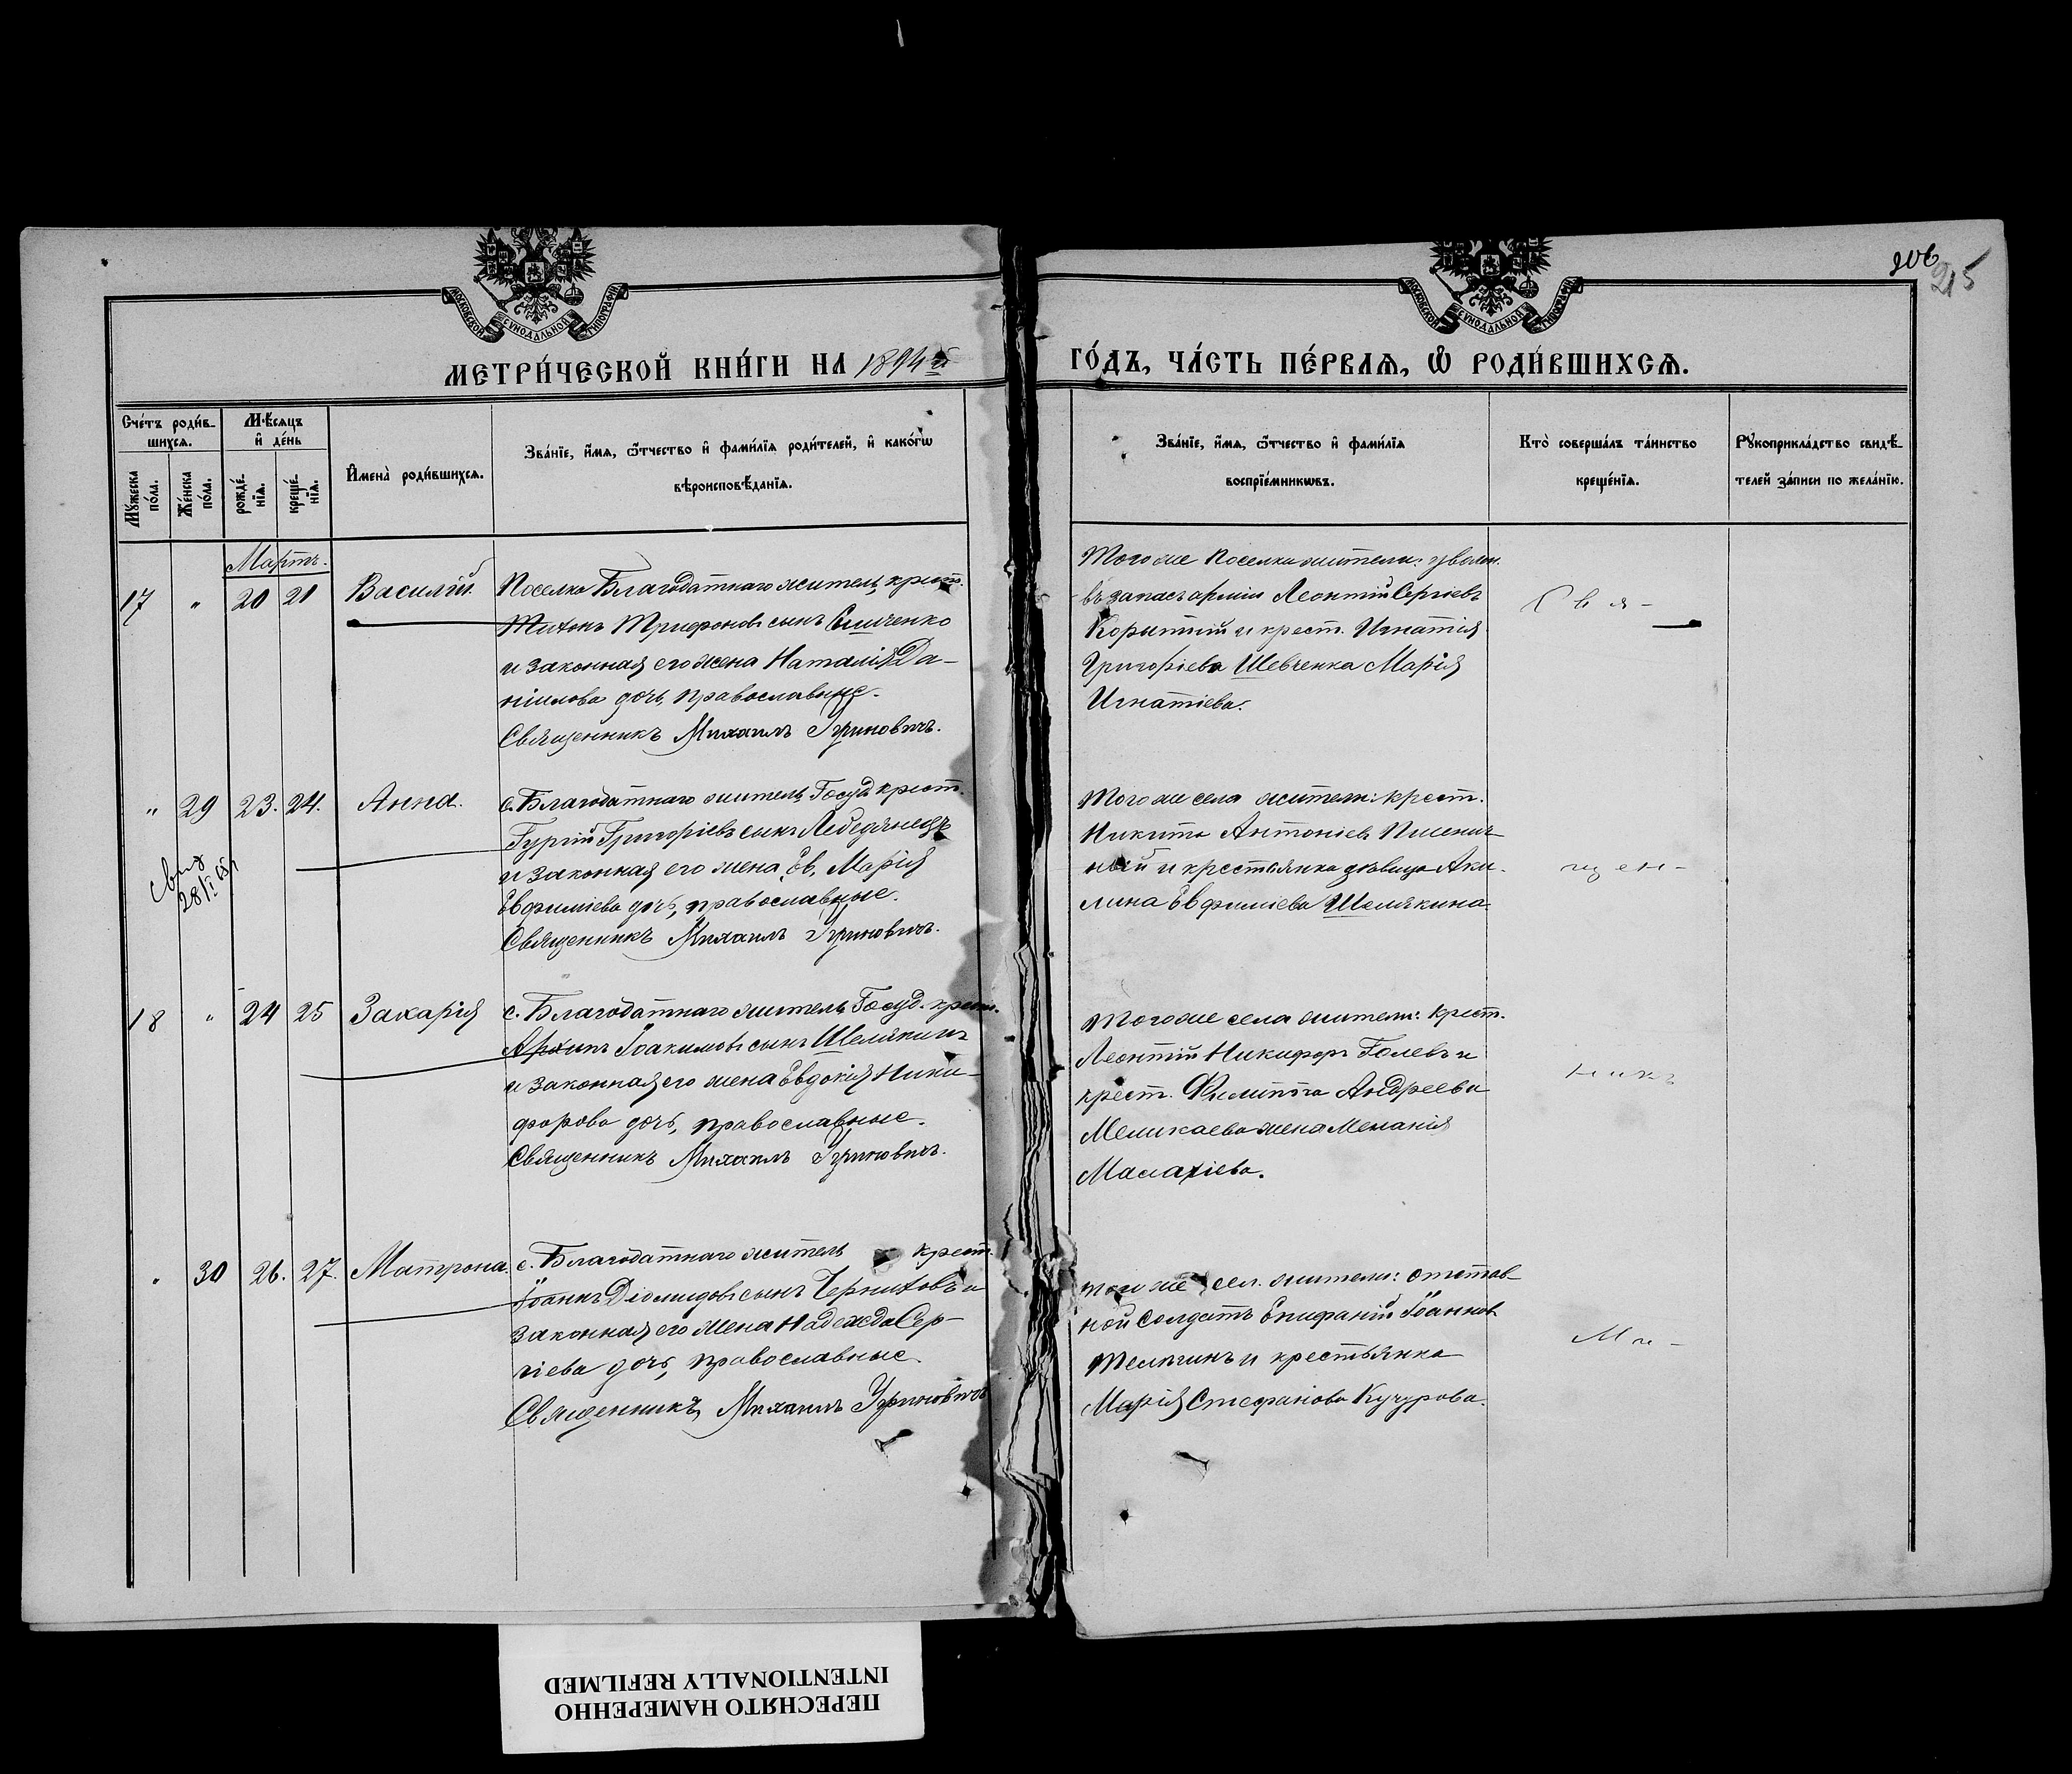 206
215
МЕТРИ́ЧЕСКОЙ КНИ́ГИ НА 1894й ГО́ДЪ, ЧА́СТЬ ПЕ́РВАѦ, Ѽ РОДИ́ВШИХСѦ.
Сче́тъ роди́в-
шихсѧ.
Мꙋ́жеска по́ла.
Же́нска по́ла.
Мѣ́сѧцъ
и҆ де́нь
рожде́-
нїѧ.
креще́-
нїѧ.
И҆мена̀ роди́вшихсѧ.
Зва́нїе, и҆́мѧ, ѻ҆́тчество и҆ фами́лїѧ роди́телей, и҆ како́гѡ
вѣроисповѣ́данїѧ.
Зва́нїе, и҆́мѧ, ѻ҆́тчество и҆ фами́лїѧ
воспрїе́мникѡвъ.
Кто̀ соверша́лъ та́инство
креще́нїѧ.
Рꙋкоприкла́дство свидѣ́-
телей за́писи по жела́нїю.
Мартъ.
17 " 20 21 Василій.
Поселка Благодатнаго житель, крест.
Тихонъ Трифоновъ сынъ
и законная его жена Наталія Да-
ніилова дочь, православные.
Священникъ Михаилъ
Тогоже поселка жители:
въ запасъ арміи Леонтій Сергіевъ
и крест. Игнатія
Григоріева Шевченка Марія
Игнатіева.
Свя-
" 29 23. 24. Анна.
с. Благодатнаго житель, Госуд. крест.
Гурій Григоріевъ сынъ Лебедянецъ
и законная его жена, Марія
Евфиміева дочь, православные.
Священникъ Михаилъ
Тогоже села жители: крест.
Никита Антоніевъ Пшенич-
ный и крестьянка девица Аки-
лина Евфиміева Шемякина.
щен-
18 " 24 25 Захарія
с. Благодатнаго житель, Госуд. крест.
Архипъ Іоакимовъ сынъ Шемякинъ
и законная его жена Евдокія Ники-
форова дочь, православные.
Священникъ Михаилъ
Тогоже села жители: крест.
Леонтій Никифоръ Голевъ и
крест. Филиппа Андреева
жена Меланія
Малахіева.
никъ
" 30 26. 27. Матрона.
с. Благодатнаго житель крест.
Іоаннъ Діомидовъ сынъ Черниховъ и
законная его жена Надежда Сер-
гіева дочь, православные.
Священникъ Михаилъ
того же сел. жители: отстав-
ной солдатъ Епифаній Іоанновъ
и крестьянка
Марія Стефанова Кучурова.
Ми-
ПЕРЕСНЯТО НАМЕРЕННО
INTENTIONALLY REFILMED